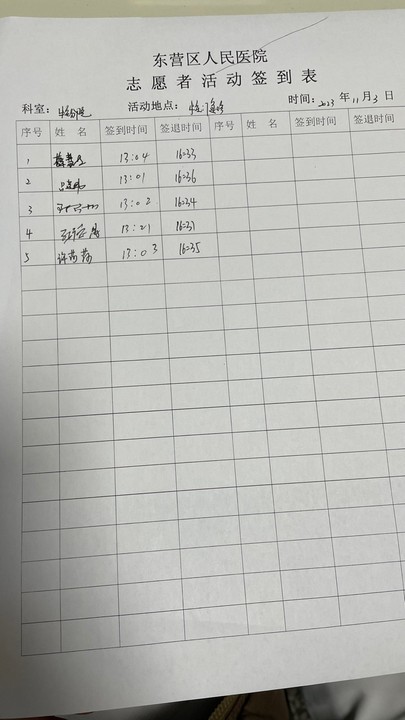 东营区人民医院
志愿者活动签到表
科室： 活动地点： 时间：2023 年 11 月 3 日
序号 姓 名 签到时间 签退时间 序号 姓 名 签到时间 签退时间
1 13:04 16:33
2 13:01 16:36
3 13:02 16:34
4 13:21 16:31
5 许 13:03 16:35